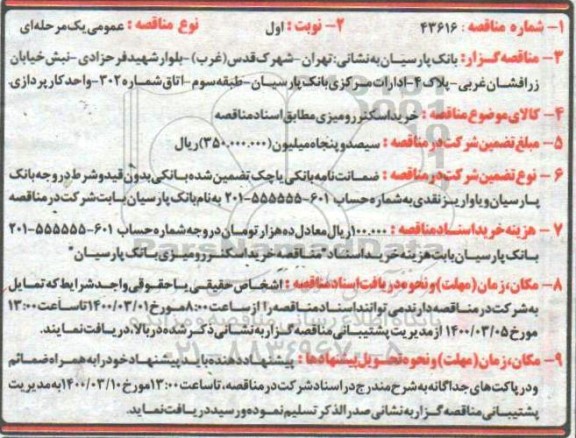 ۱- شماره مناقصه : ۴۳۶۱۶ ۲- نوبت : اول نوع مناقصه : عمومی یک مرحله‌ای
۳- مناقصه گزار : بانک پارسیان به نشانی : تهران - شهرک قدس (غرب) - بلوار شهید فرحزادی - نبش خیابان
زرافشان غربی - پلاک ۴ - ادارات مرکزی بانک پارسیان - طبقه سوم - اتاق شماره ۳۰۲ - واحد کارپردازی.
۴- کالای موضوع مناقصه : خرید اسکنر رومیزی مطابق اسناد مناقصه
۵- مبلغ تضمین شرکت در مناقصه : سیصد و پنجاه میلیون (۳۵۰.۰۰۰.۰۰۰) ریال
۶- نوع تضمین شرکت در مناقصه : ضمانت نامه بانکی یا چک تضمین شده بانکی بدون قید و شرط در وجه بانک
پارسیان و یا واریز نقدی به شماره حساب ۶۰۱-۵۵۵۵۵۵-۲۰۱ به نام بانک پارسیان بابت شرکت در مناقصه
۷- هزینه خرید اسناد مناقصه : ۱۰۰.۰۰۰ ریال معادل ده هزار تومان در وجه شماره حساب ۶۰۱-۵۵۵۵۵۵-۲۰۱
بانک پارسیان بابت هزینه خرید اسناد "مناقصه خرید اسکنر رومیزی بانک پارسیان"
ParsNamadData
۸- مکان، زمان (مهلت) و نحوه دریافت اسناد مناقصه : اشخاص حقیقی یا حقوقی واجد شرایط که تمایل
به شرکت در مناقصه دارند می توانند اسناد مناقصه را از ساعت ۸:۰۰ مورخ ۱۴۰۰/۰۳/۰۱ تا ساعت ۱۳:۰۰
مورخ ۱۴۰۰/۰۳/۰۵ از مدیریت پشتیبانی مناقصه گزار به نشانی ذکر شده در بالا، دریافت نمایند.
۰۲۱-۸۸۳۴۹۶۷۰-۵
۹- مکان، زمان (مهلت) و نحوه تحویل پیشنهادها : پیشنهاد دهنده باید پیشنهاد خود را به همراه ضمائم
و در پاکت های جداگانه به شرح مندرج در اسناد شرکت در مناقصه، تا ساعت ۱۳:۰۰ مورخ ۱۴۰۰/۰۳/۱۰ به مدیریت
پشتیبانی مناقصه گزار به نشانی صدرالذکر تسلیم نموده و رسید دریافت نماید.